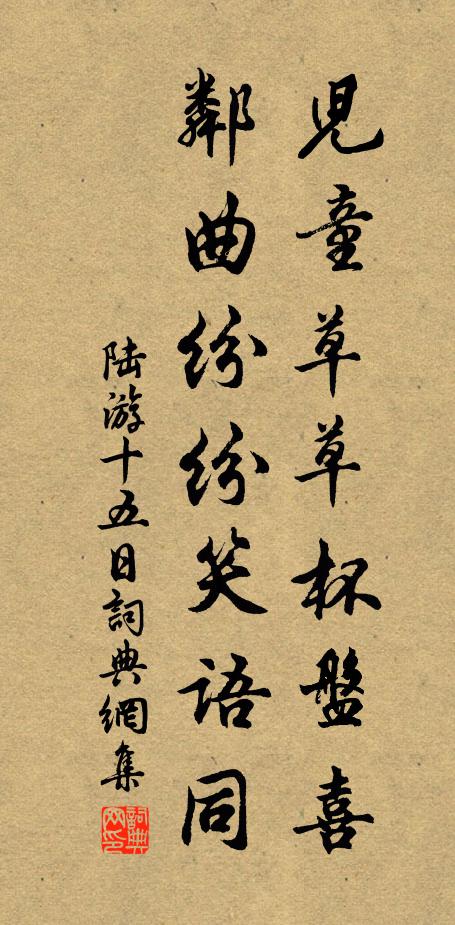 児童草草杯盤喜
鄰曲紛紛笑語同
陆游十五日詞典網集
詞典网印